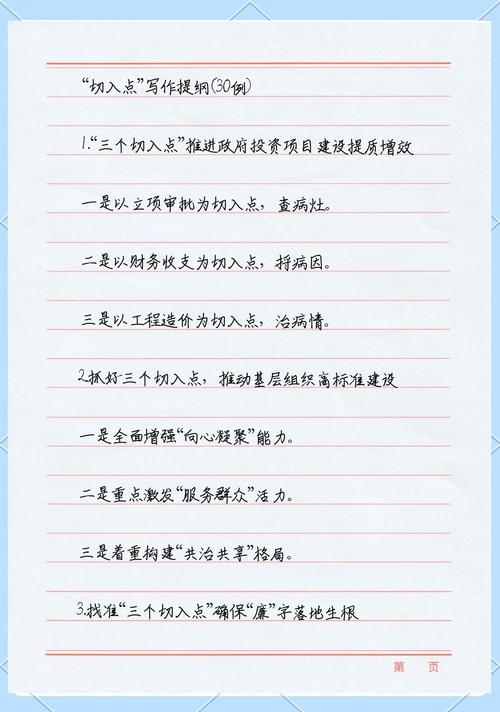 “切入点”写作提纲(30例)
1.“三个切入点”推进政府投资项目建设提质增效
一是以立项审批为切入点，查病灶。
二是以财务收支为切入点，捋病因。
三是以工程造价为切入点，治病情。
2.抓好三个切入点，推动基层组织高标准建设
一是全面增强“向心凝聚”能力。
二是重点激发“服务群众”活力。
三是着重构建“共治共享”格局。
3.找准“三个切入点”确保“廉”字落地生根
第 页